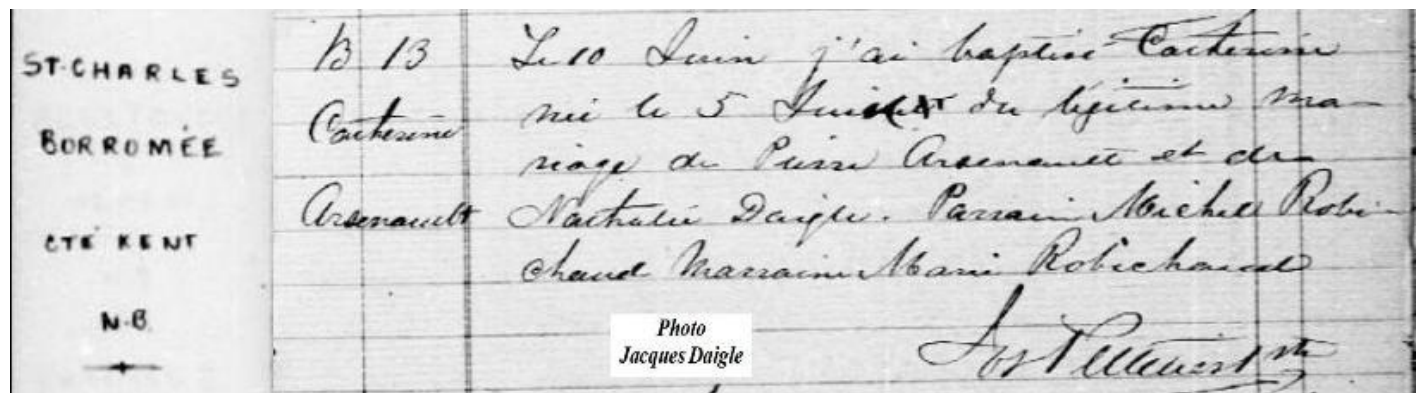 ST. CHARLES
BORROMÉE
CTÉ KENT
N.B.
B 13
Catherine
Arsenault
Le 10 Juin j'ai baptisé Catherine
née le 5 du légitime ma-
riage de Pierre Arsenault et de
Nathalie Daigle. Parrain Michel Robi-
chaud Marraine Marie Robichaud
Jos Pelletier Ptre
Photo
Jacques Daigle